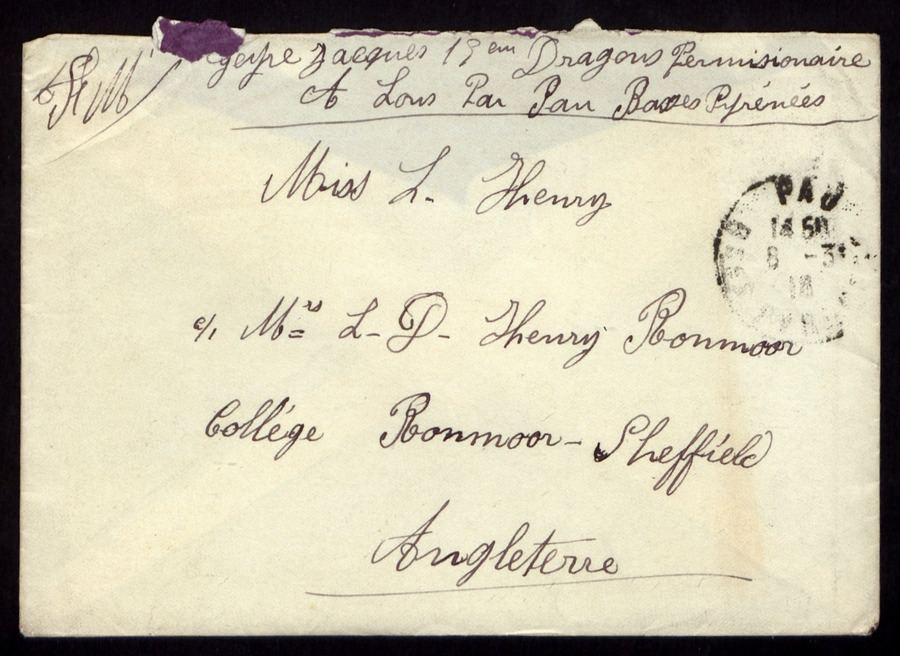 FM
Jacques 13em Dragons Permisionaire
A Lons Par Pau Basses Pyrénées
Miss L. Henry
c/. Mrs L-D- Henry Ronmoor
Collége Ronmoor - Sheffield
Angleterre
PAU
8 -3
18